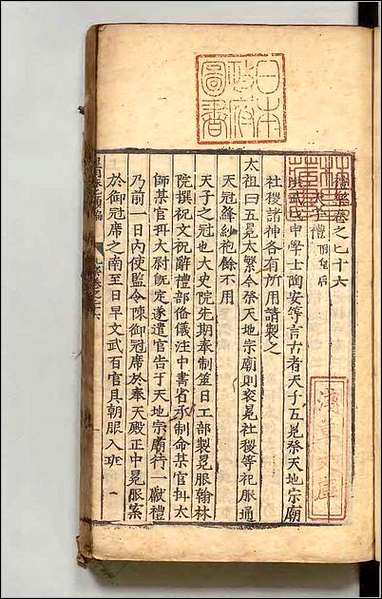 日本
政府
圖書
卷之七十六
中學士陶安等言古者天子五冕祭天地宗廟
社稷諸神各有所用請製之
太祖曰五冕太繁今祭天地宗廟則袞冕社稷等祀服通
天冠絳紗袍餘不用
天子之冠也太史院先期奉制筮日工部製冕服翰林
院撰祝文祝辭禮部俻儀注中書省承制命某官攝太
師某官攝太尉旣定遂遣官告于天地宗廟待一獻禮
乃前一日內使監令陳御冠席於奉天殿正中冕服案
於御冠席之南至日早文武百官具朝服入班